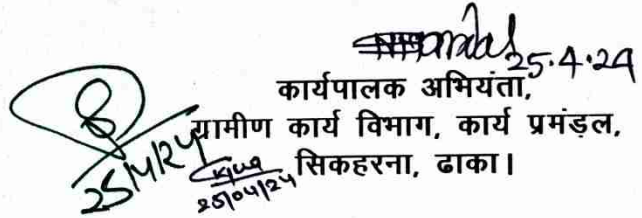 25.4.24
कार्यपालक अभियंता,
ग्रामीण कार्य विभाग, कार्य प्रमंड़ल,
सिकहरना, ढाका।
25/4/24
25/04/24